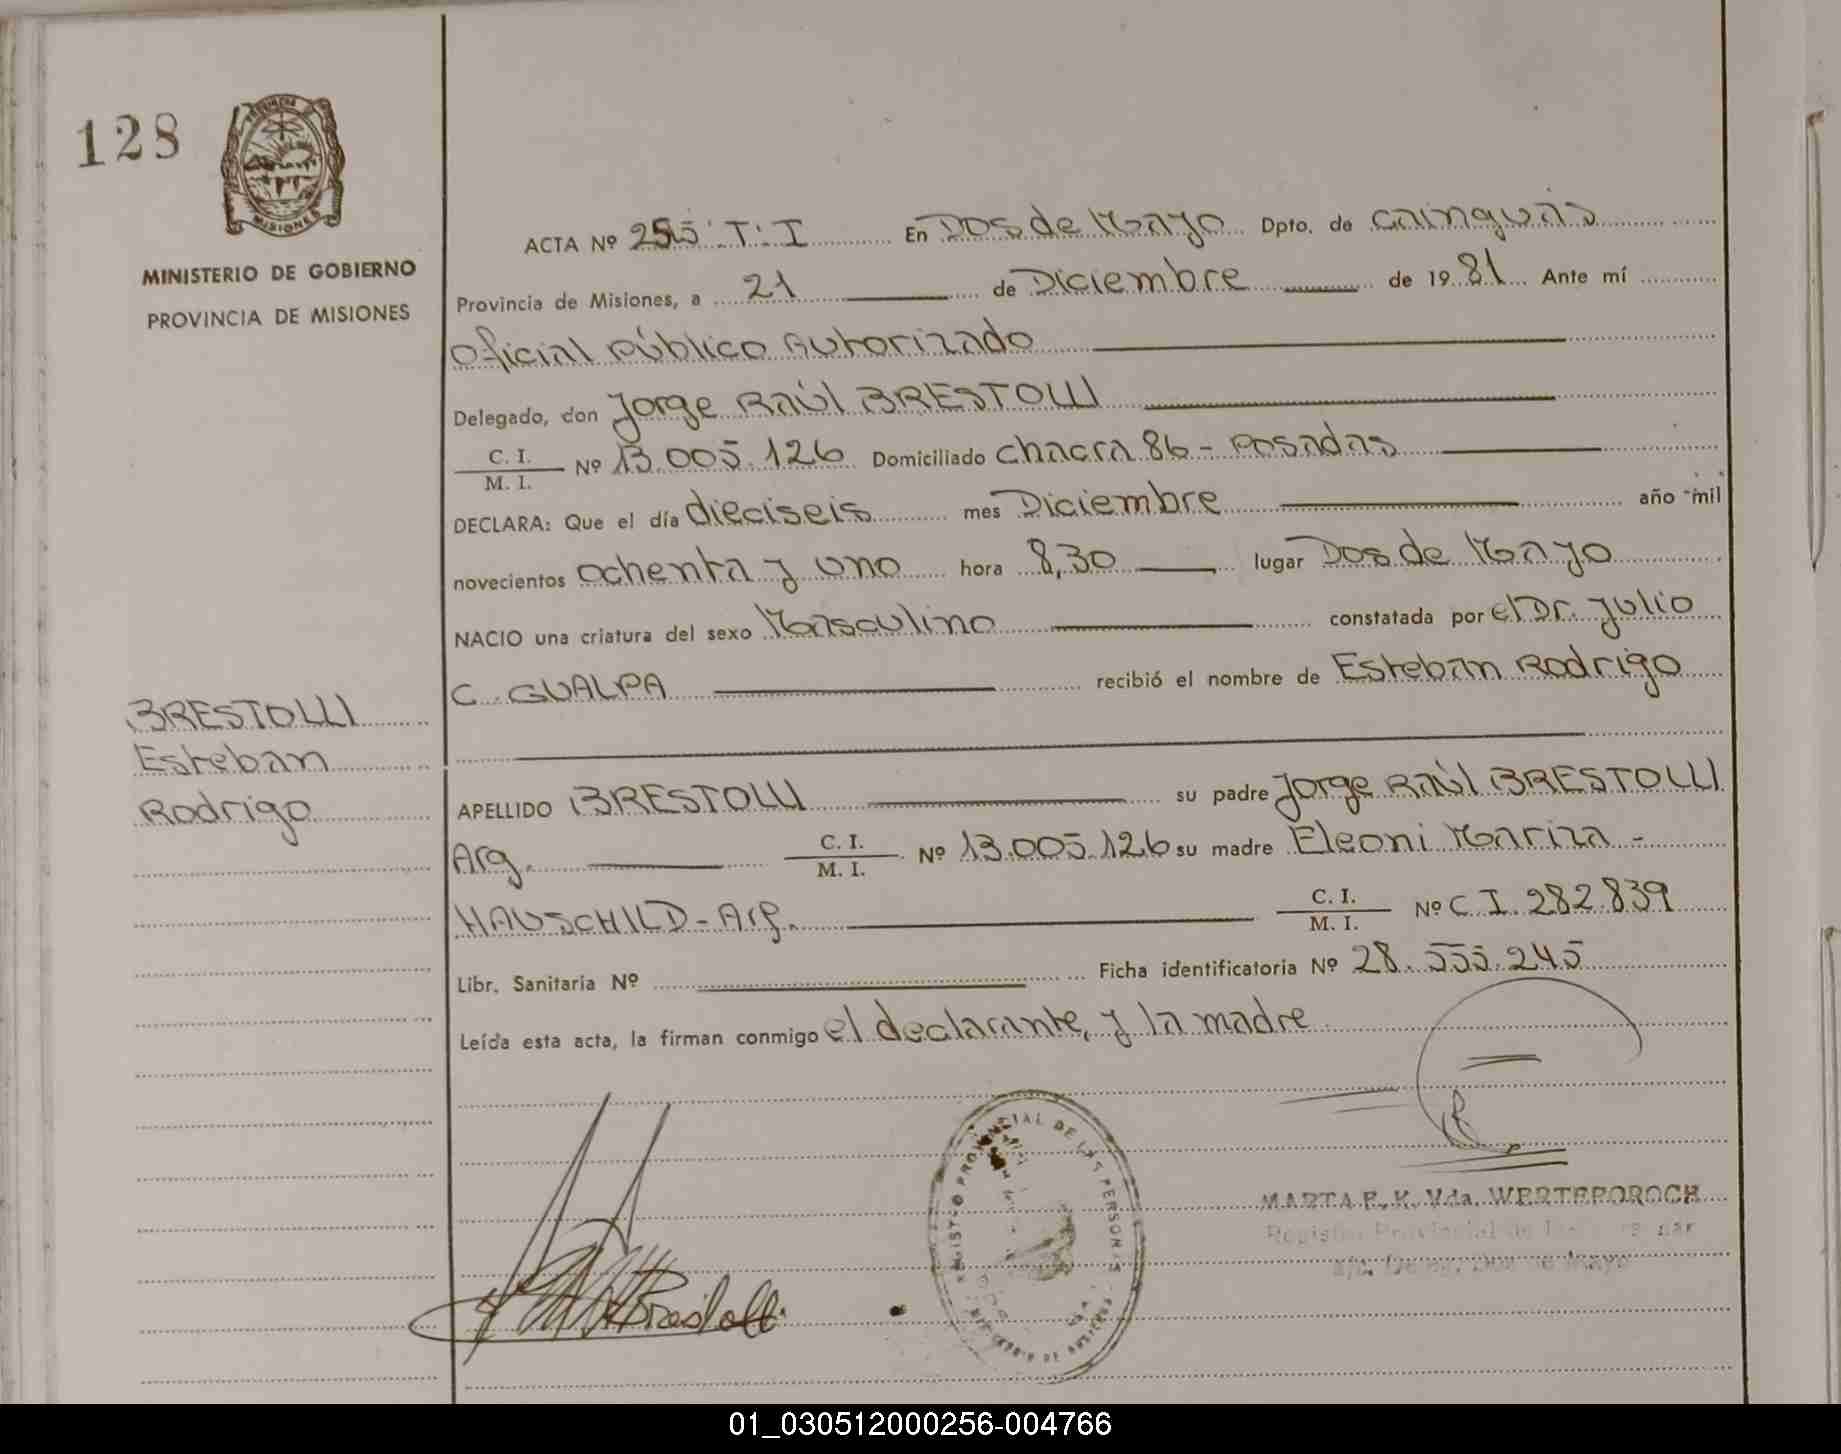 128
PROVINCIA
MISIONES
MINISTERIO DE GOBIERNO
PROVINCIA DE MISIONES
BRESTOLLI
Esteban
Rodrigo
ACTA Nº 255 T: I En Dos de Mayo Dpto. de Cainguas
Provincia de Misiones, a 21 de Diciembre de 1981 Ante mí
Oficial Público Autorizado
Delegado, don Jorge Raúl BRESTOLLI
C. I.
M. I. Nº 13.005.126 Domiciliado chacra 86 - Posadas
DECLARA: Que el día dieciseis mes Diciembre año mil
novecientos ochenta y uno hora 8,30 lugar Dos de Mayo
NACIO una criatura del sexo Masculino constatada por el Dr. Julio
C. GUALPA recibió el nombre de Esteban Rodrigo
APELLIDO BRESTOLLI su padre Jorge Raúl BRESTOLLI
Arg. C. I.
M. I. Nº 13.005.126 su madre Eleoni Mariza -
HAUSCHILD - Arg. C. I.
M. I. Nº C I. 282.839
Libr. Sanitaria Nº Ficha identificatoria Nº 28.555.245
Leída esta acta, la firman conmigo el declarante, y la madre
Brestolli
REGISTRO PROVINCIAL DE LAS PERSONAS
MARTA E. K. Vda. WERTEPOROCH
Registro Provincial de
Dos de Mayo
01_030512000256-004766